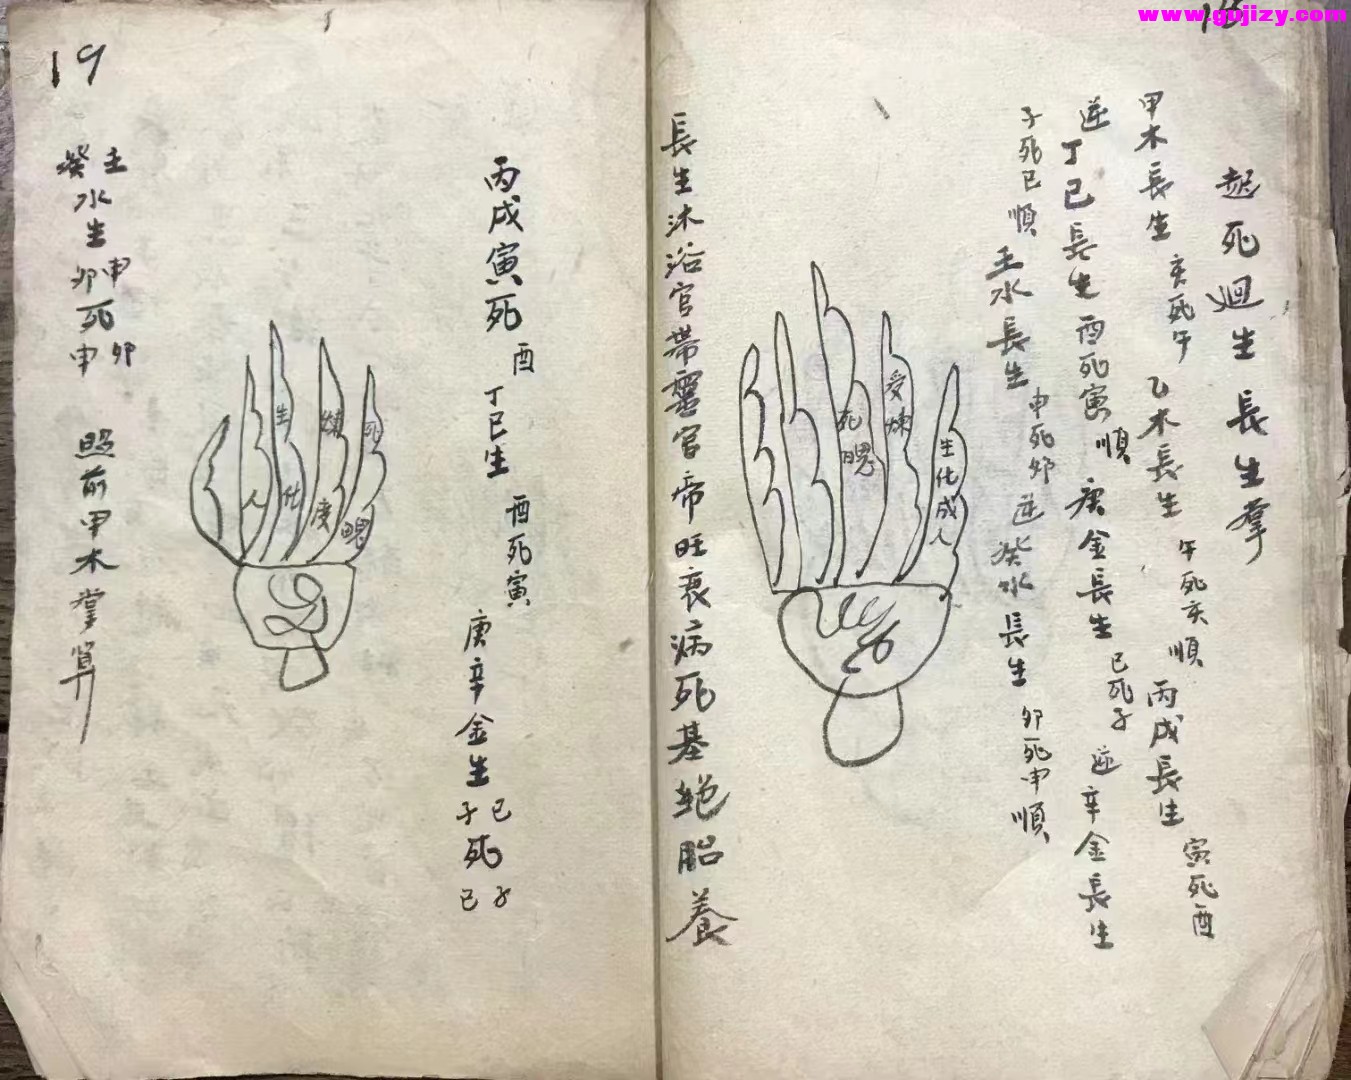 www.gujizy.com
18
起死迴生長生掌
甲木長生 亥死午 乙木長生 午死亥 順 丙戊長生 寅死酉
逆丁己長生酉死寅 順 庚金長生 巳死子 逆辛金長生
子死巳順 壬水長生 申死卯 逆癸水長生 卯死申順
受煉
生化成人
死魂
長生沐浴官帶臨官帝旺衰病死基絕胎養
19
丙戊寅死 酉 丁己生 酉死寅
庚辛金生 巳子 死 子巳
人
生化
煉度
死魂
壬癸水生 申卯 死 卯申 照前甲木掌算